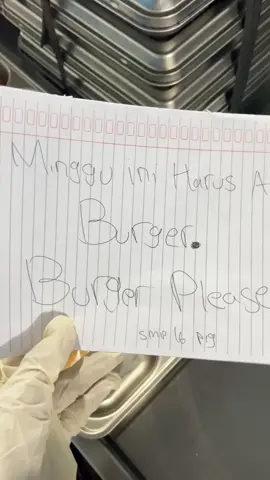 Minggu ini Harus A
Burger.
Burger Please
smp 16